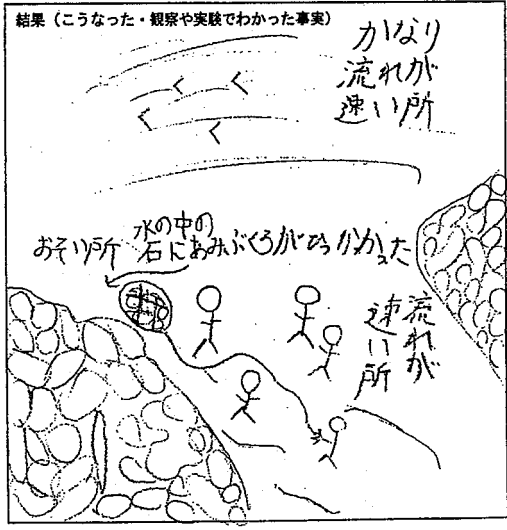 結果（こうなった・観察や実験でわかった事実）
かなり
流れが
速い所
おそい所
水の中の
石にあみぶくろがひっかかった
流れが
速い所